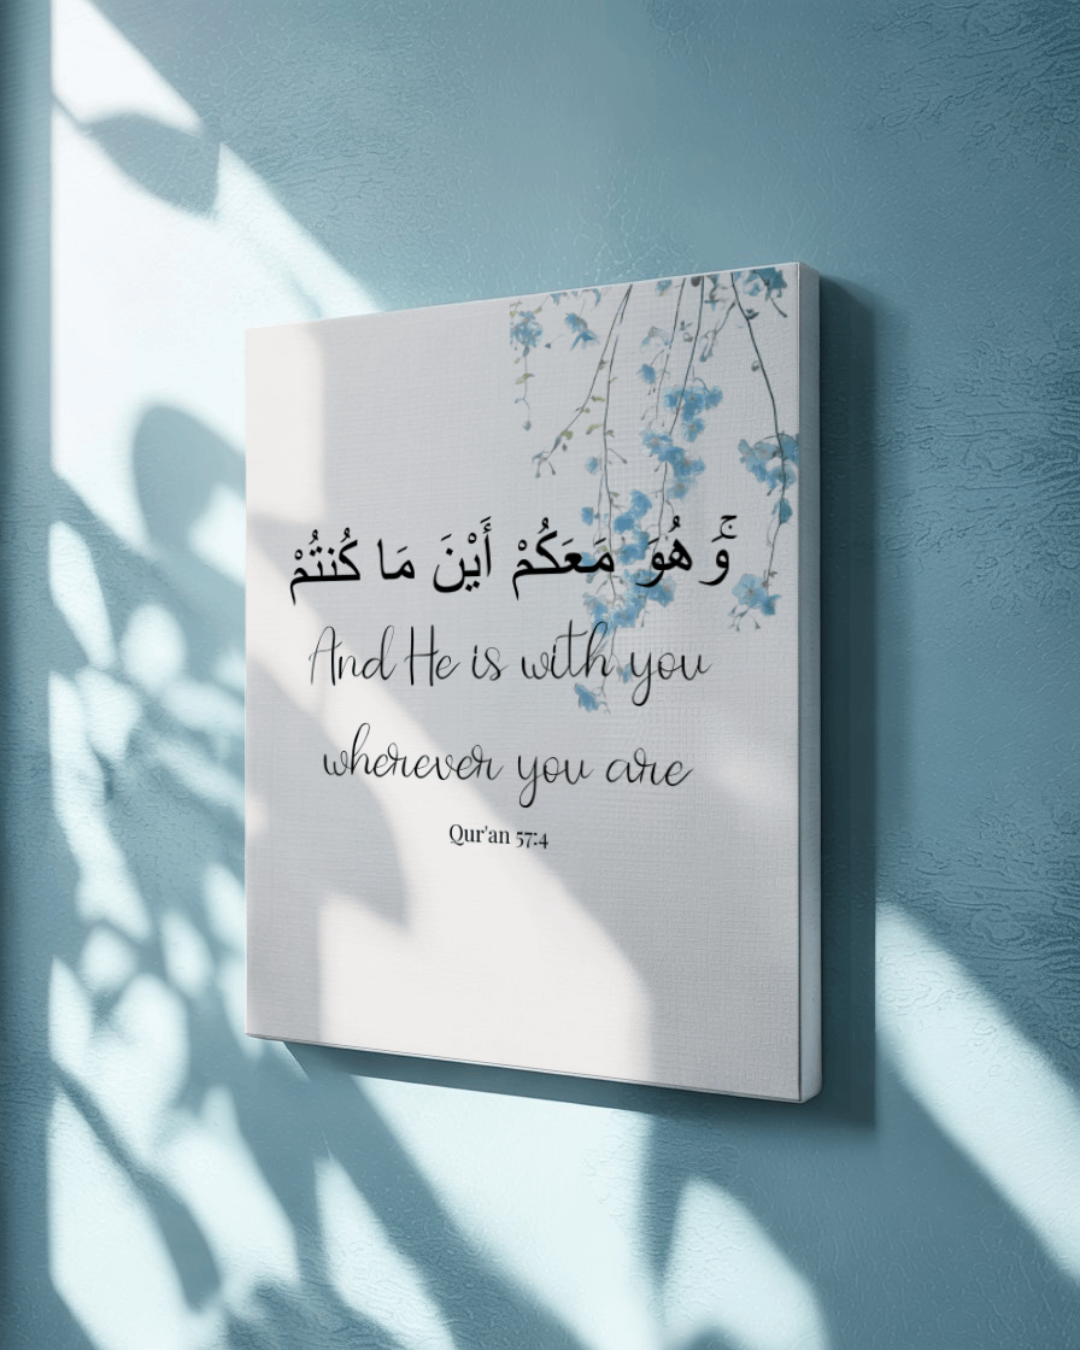 وَۚ هُوَ مَعَكُمْ أَيْنَ مَا كُنتُمْ
And He is with you
wherever you are
Qur'an 57:4